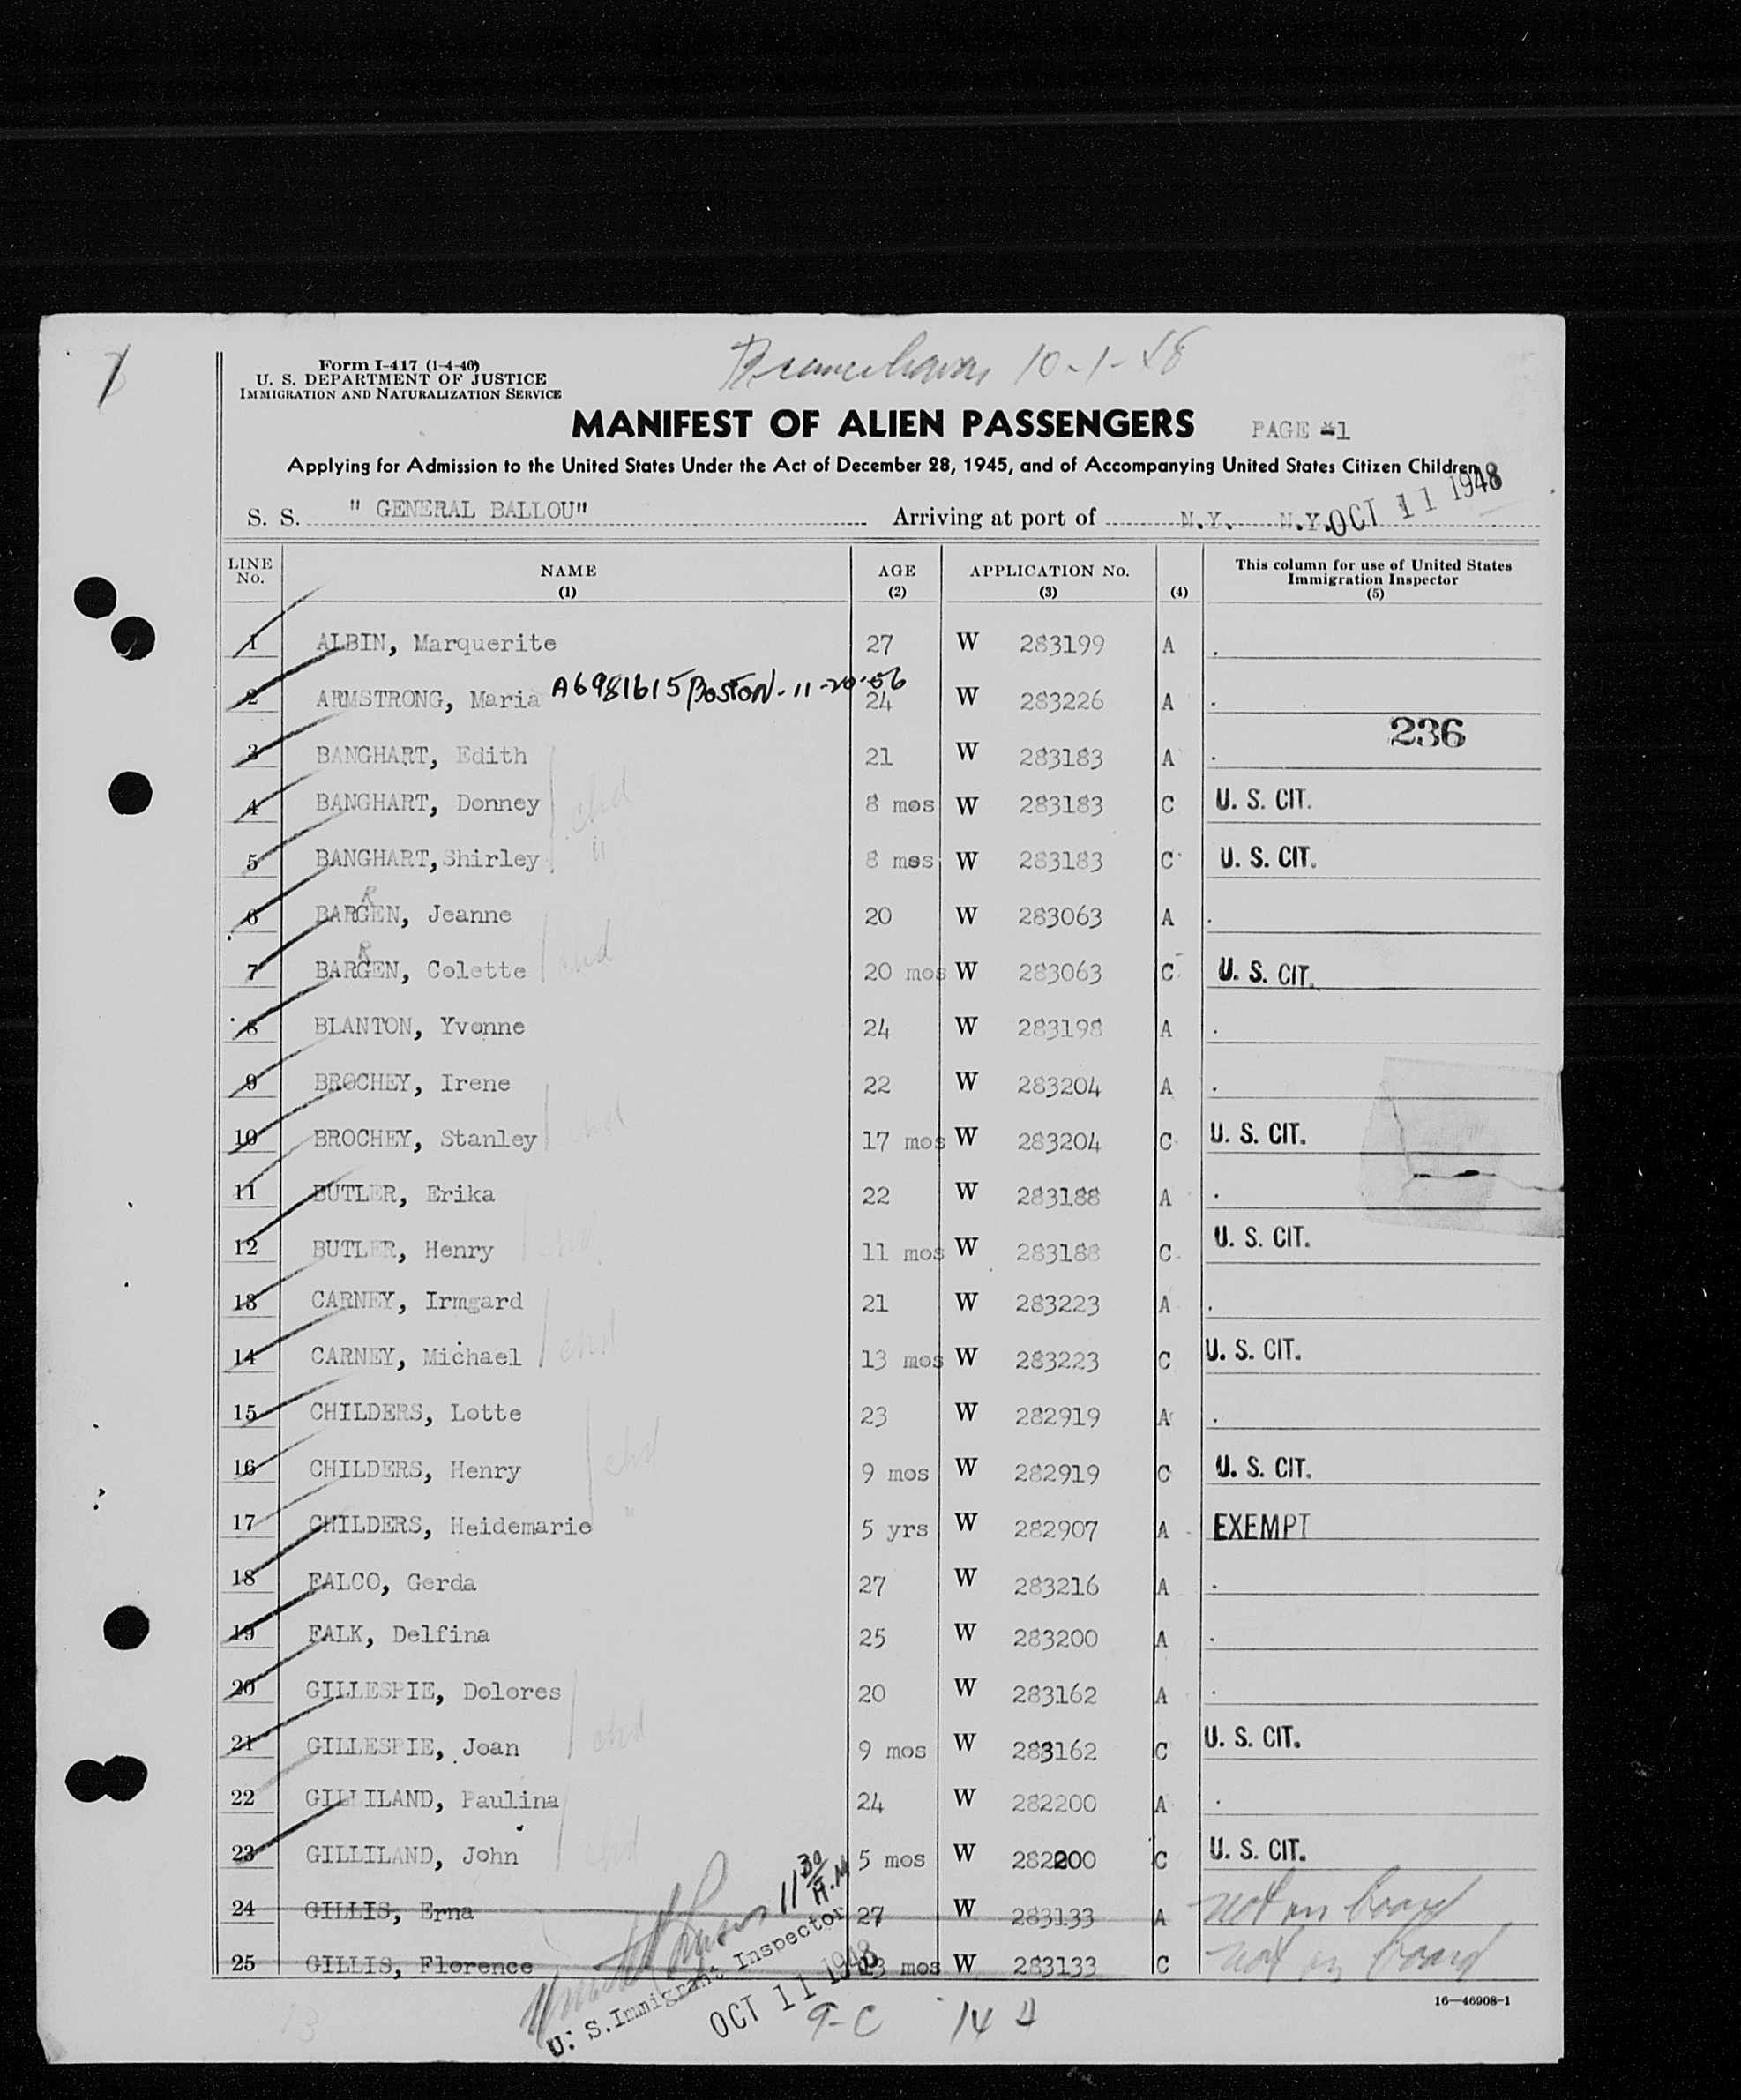 Form I-417 (1-4-46)
U. S. DEPARTMENT OF JUSTICE
IMMIGRATION AND NATURALIZATION SERVICE
Bremerhaven 10-1-48
MANIFEST OF ALIEN PASSENGERS PAGE #1
Applying for Admission to the United States Under the Act of December 28, 1945, and of Accompanying United States Citizen Children
S. S. " GENERAL BALLOU" Arriving at port of N.Y. N.Y. OCT 11 1948
LINE No. NAME (1) AGE (2) APPLICATION No. (3) (4) This column for use of United States Immigration Inspector (5)
1 ALBIN, Marquerite 27 W 283199 A
2 ARMSTRONG, Maria A6981615 Boston-11-20-56 24 W 283226 A
236
3 BANGHART, Edith 21 W 283183 A
4 BANGHART, Donney chd 8 mos W 283183 C U. S. CIT.
5 BANGHART, Shirley " 8 mos W 283183 C U. S. CIT.
R
6 BARGEN, Jeanne 20 W 283063 A
R
7 BARGEN, Colette chd 20 mos W 283063 C U. S. CIT.
8 BLANTON, Yvonne 24 W 283198 A
9 BROCHEY, Irene 22 W 283204 A
10 BROCHEY, Stanley chd 17 mos W 283204 C U. S. CIT.
11 BUTLER, Erika 22 W 283188 A
12 BUTLER, Henry chd 11 mos W 283188 C U. S. CIT.
13 CARNEY, Irmgard 21 W 283223 A
14 CARNEY, Michael chd 13 mos W 283223 C U. S. CIT.
15 CHILDERS, Lotte 23 W 282919 A
16 CHILDERS, Henry chd 9 mos W 282919 C U. S. CIT.
17 CHILDERS, Heidemarie " 5 yrs W 282907 A EXEMPT
18 FALCO, Gerda 27 W 283216 A
19 FALK, Delfina 25 W 283200 A
20 GILLESPIE, Dolores 20 W 283162 A
21 GILLESPIE, Joan chd 9 mos W 283162 C U. S. CIT.
22 GILLILAND, Paulina 24 W 282200 A
23 GILLILAND, John chd 5 mos W 282200 C U. S. CIT.
11 30 A.M
24 GILLIS, Erna 27 W 283133 A not on board
25 GILLIS, Florence 23 mos W 283133 C not on board
U. S. Immigrant Inspector
OCT 11 1948
9-C 14 A
16—46908-1
13